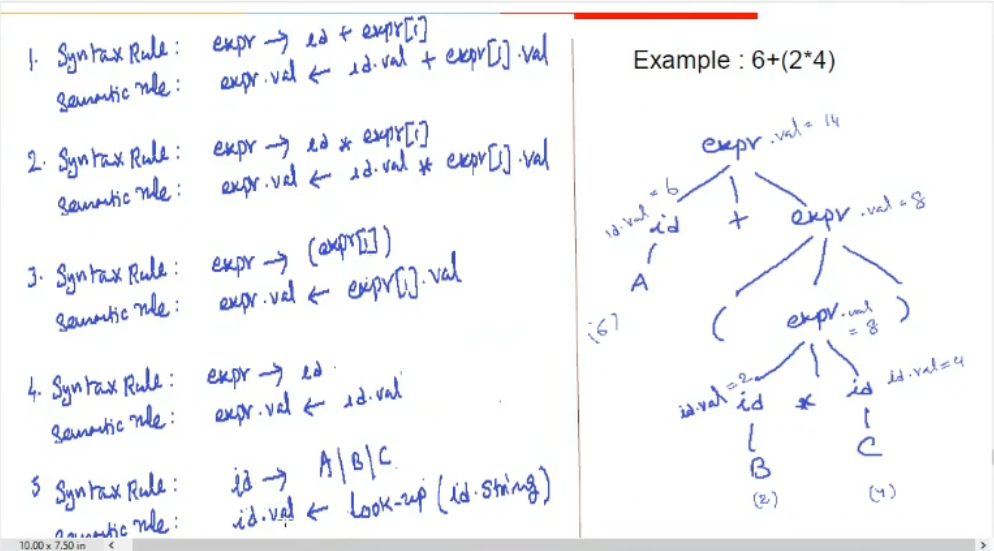 1. Syntax Rule : expr → id + expr[1]
Semantic rule : expr.val ← id.val + expr[1].val
2. Syntax Rule : expr → id * expr[1]
Semantic rule : expr.val ← id.val * expr[1].val
3. Syntax Rule : expr → (expr[1])
Semantic rule : expr.val ← expr[1].val
4. Syntax Rule : expr → id
Semantic rule : expr.val ← id.val
5 Syntax Rule : id → A|B|C
Semantic rule : id.val ← Look-up (id.string)
Example : 6+(2*4)
expr.val = 14
id.val = 6
id + expr.val = 8
A
(6)
( expr.val = 8 )
id.val = 2 id * id id.val = 4
B C
(2) (4)
10.00 x 7.50 in